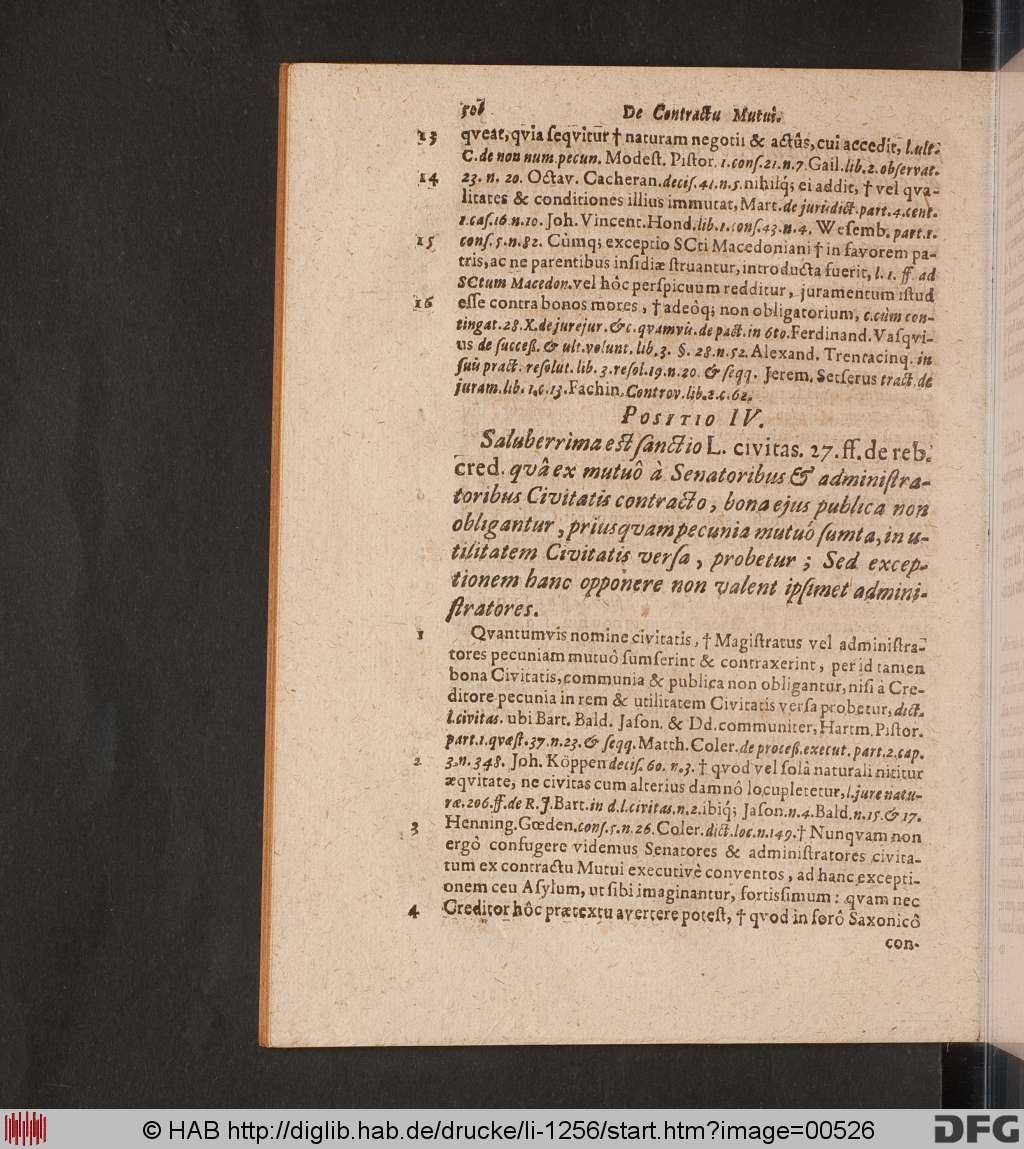 506 De Contractu Mutui.
13 qveat, qvia ſeqvitur † naturam negotii & actûs, cui accedit, l. ult.
C. de non num. pecun. Modeſt. Piſtor. 1. conſ. 21. n. 7. Gail. lib. 2. obſervat.
14 23. n. 20. Octav. Cacheran. deciſ. 41. n. 5. nihilq́; ei addit, † vel qva-
litates & conditiones illius immutat, Mart. de jurisdict. part. 4. cent.
1. caſ. 16. n. 10. Joh. Vincent. Hond. lib. 1. conſ. 43. n. 4. Weſemb. part. 1.
15 conſ. 5. n. 82. Cùmq; exceptio SCti Macedoniani † in favorem pa-
tris, ac ne parentibus inſidiæ ſtruantur, introducta fuerit, l. 1. ff. ad
SCtum Macedon. vel hôc perſpicuum redditur, juramentum iſtud
16 eſſe contra bonos mores, † adeòq; non obligatorium, c. cùm con-
tingat. 28. X. de jurejur. & c. qvamvis. de pact. in 6to. Ferdinand. Vaſqvi-
us de ſucceß. & ult. volunt. lib. 3. §. 28. n. 52. Alexand. Trentacinq. in
ſuis pract. reſolut. lib. 3. reſol. 19. n. 20. & ſeqq. Jerem. Setſerus tract. de
juram. lib. 1. c. 13. Fachin. Controv. lib. 2. c. 62.
POSITIO IV.
Saluberrima eſt ſanctio L. civitas. 27. ff. de reb.
cred. quâ ex mutuô à Senatoribus & adminiſtra-
toribus Civitatis contracto, bona ejus publica non
obligantur, priusquam pecunia mutuó ſumta, in u-
tilitatem Civitatis verſa, probetur; Sed excep-
tionem hanc opponere non valent ipſimet admini-
ſtratores.
1 Qvantumvis nomine civitatis, † Magiſtratus vel adminiſtra-
tores pecuniam mutuô ſumſerint & contraxerint, per id tamen
bona Civitatis, communia & publica non obligantur, niſi à Cre-
ditore pecunia in rem & utilitatem Civitatis verſa probetur, dict.
l. civitas. ubi Bart. Bald. Jaſon. & Dd. communiter, Hartm. Piſtor.
part. 1. qvæſt. 37. n. 23. & ſeqq. Matth. Coler. de proceß. execut. part. 2. cap.
2 3. n. 348. Joh. Köppen deciſ. 60. n. 3. † qvod vel ſolâ naturali nititur
æqvitate, ne civitas cum alterius damnô locupletetur, l. jure natu-
ræ. 206. ff. de R. J. Bart. in d. l. civitas. n. 2. ibiq́; Jaſon. n. 4. Bald. n. 15. & 17.
3 Henning. Gœden. conſ. 5. n. 26. Coler. dict. loc. n. 149. † Nunqvam non
ergò confugere videmus Senatores & adminiſtratores civita-
tum ex contractu Mutui executivè conventos, ad hanc excepti-
onem ceu Aſylum, ut ſibi imaginantur, fortiſſimum: qvam nec
4 Creditor hôc prætextu avertere poteſt, † qvod in forô Saxonicô
con-
© HAB http://diglib.hab.de/drucke/li-1256/start.htm?image=00526
DFG